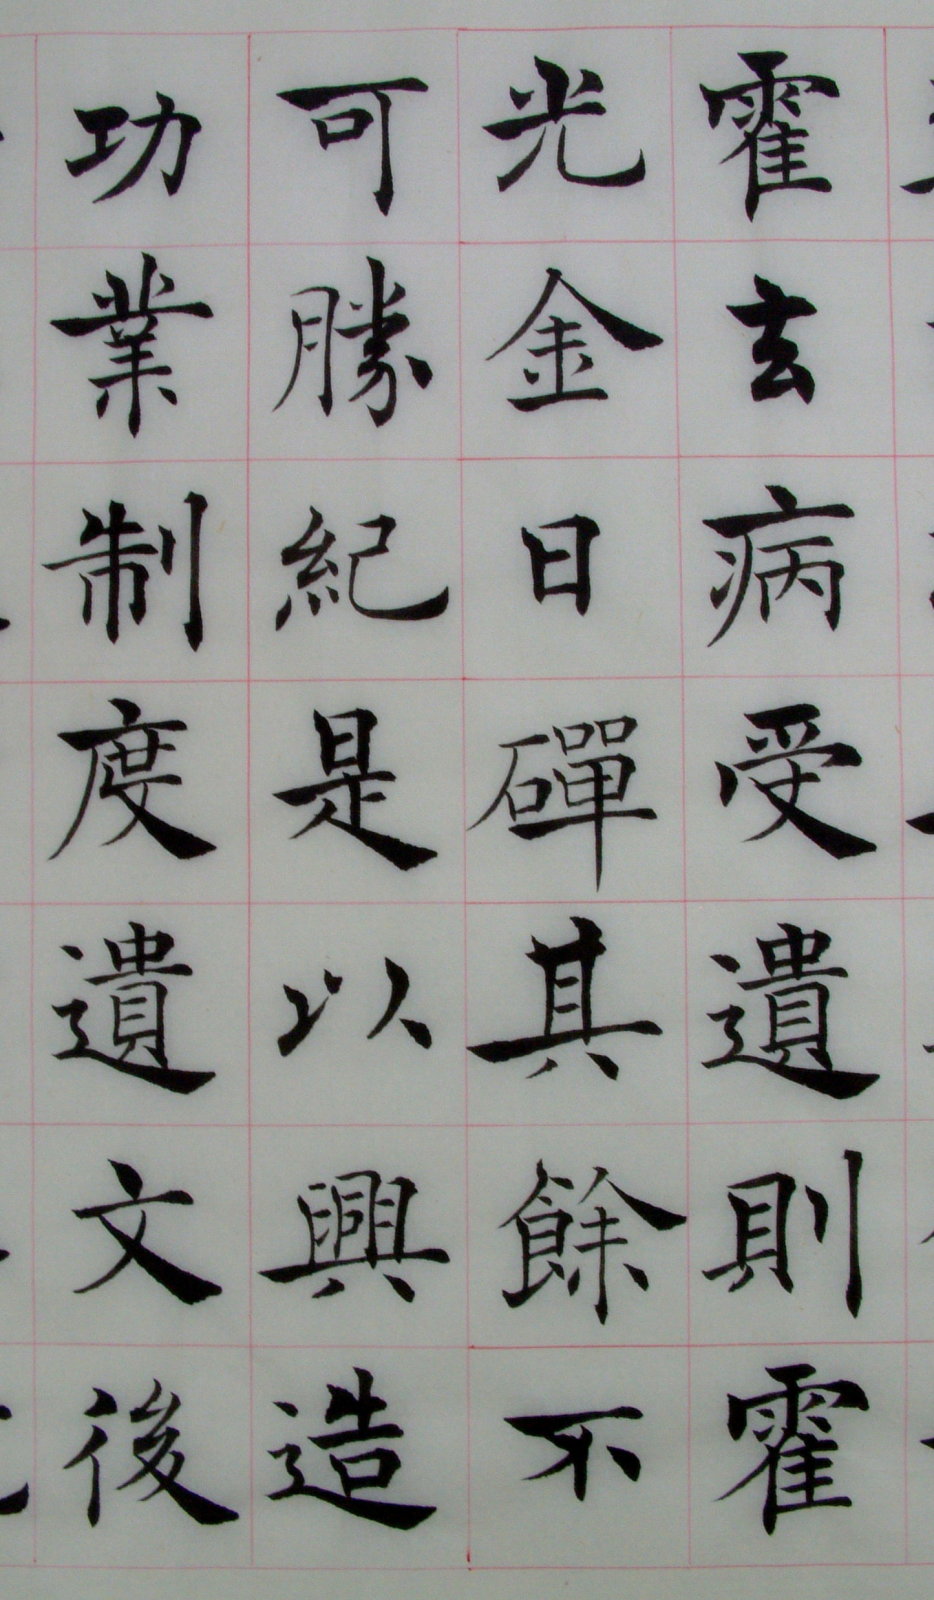 霍玄病受遺則霍
光金日磾其餘不
可勝紀是以興造
功業制度遺文後